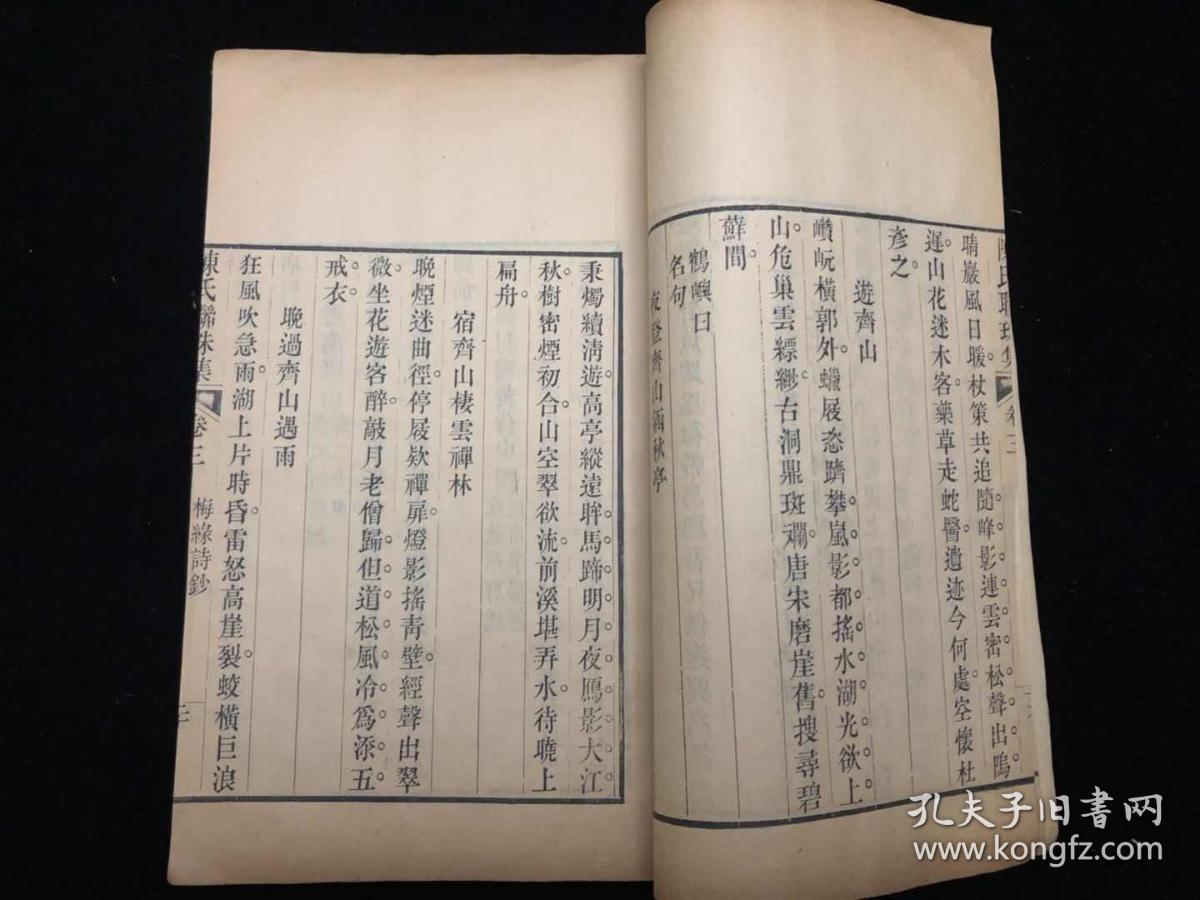 陳氏聯珠集 卷三
晴巖風日暖杖策共追隨峰影連雲密松聲出塢
遲山花迷木客藥草走蛇醫遺迹今何處空懷杜
彥之
遊齊山
巑岏橫郭外蠟屐恣躋攀嵐影都搖水湖光欲上
山危巢雲縹緲古洞鼎斑斕唐宋磨崖舊搜尋碧
蘚間
鶴嶼曰
名句
夜登齊山涵秋亭
秉燭續淸遊高亭縱遠眸馬蹄明月夜鴈影大江
秋樹密煙初合山空翠欲流前溪堪弄水待曉上
扁舟
宿齊山棲雲禪林
晚煙迷曲徑停屐欵禪扉燈影搖靑壁經聲出翠
微坐花遊客醉敲月老僧歸但道松風冷爲添五
戒衣
晚過齊山遇雨
狂風吹急雨湖上片時昏雷怒高崖裂蛟橫巨浪
陳氏聯珠集 卷三 梅緣詩鈔
孔夫子旧书网
www.kongfz.com